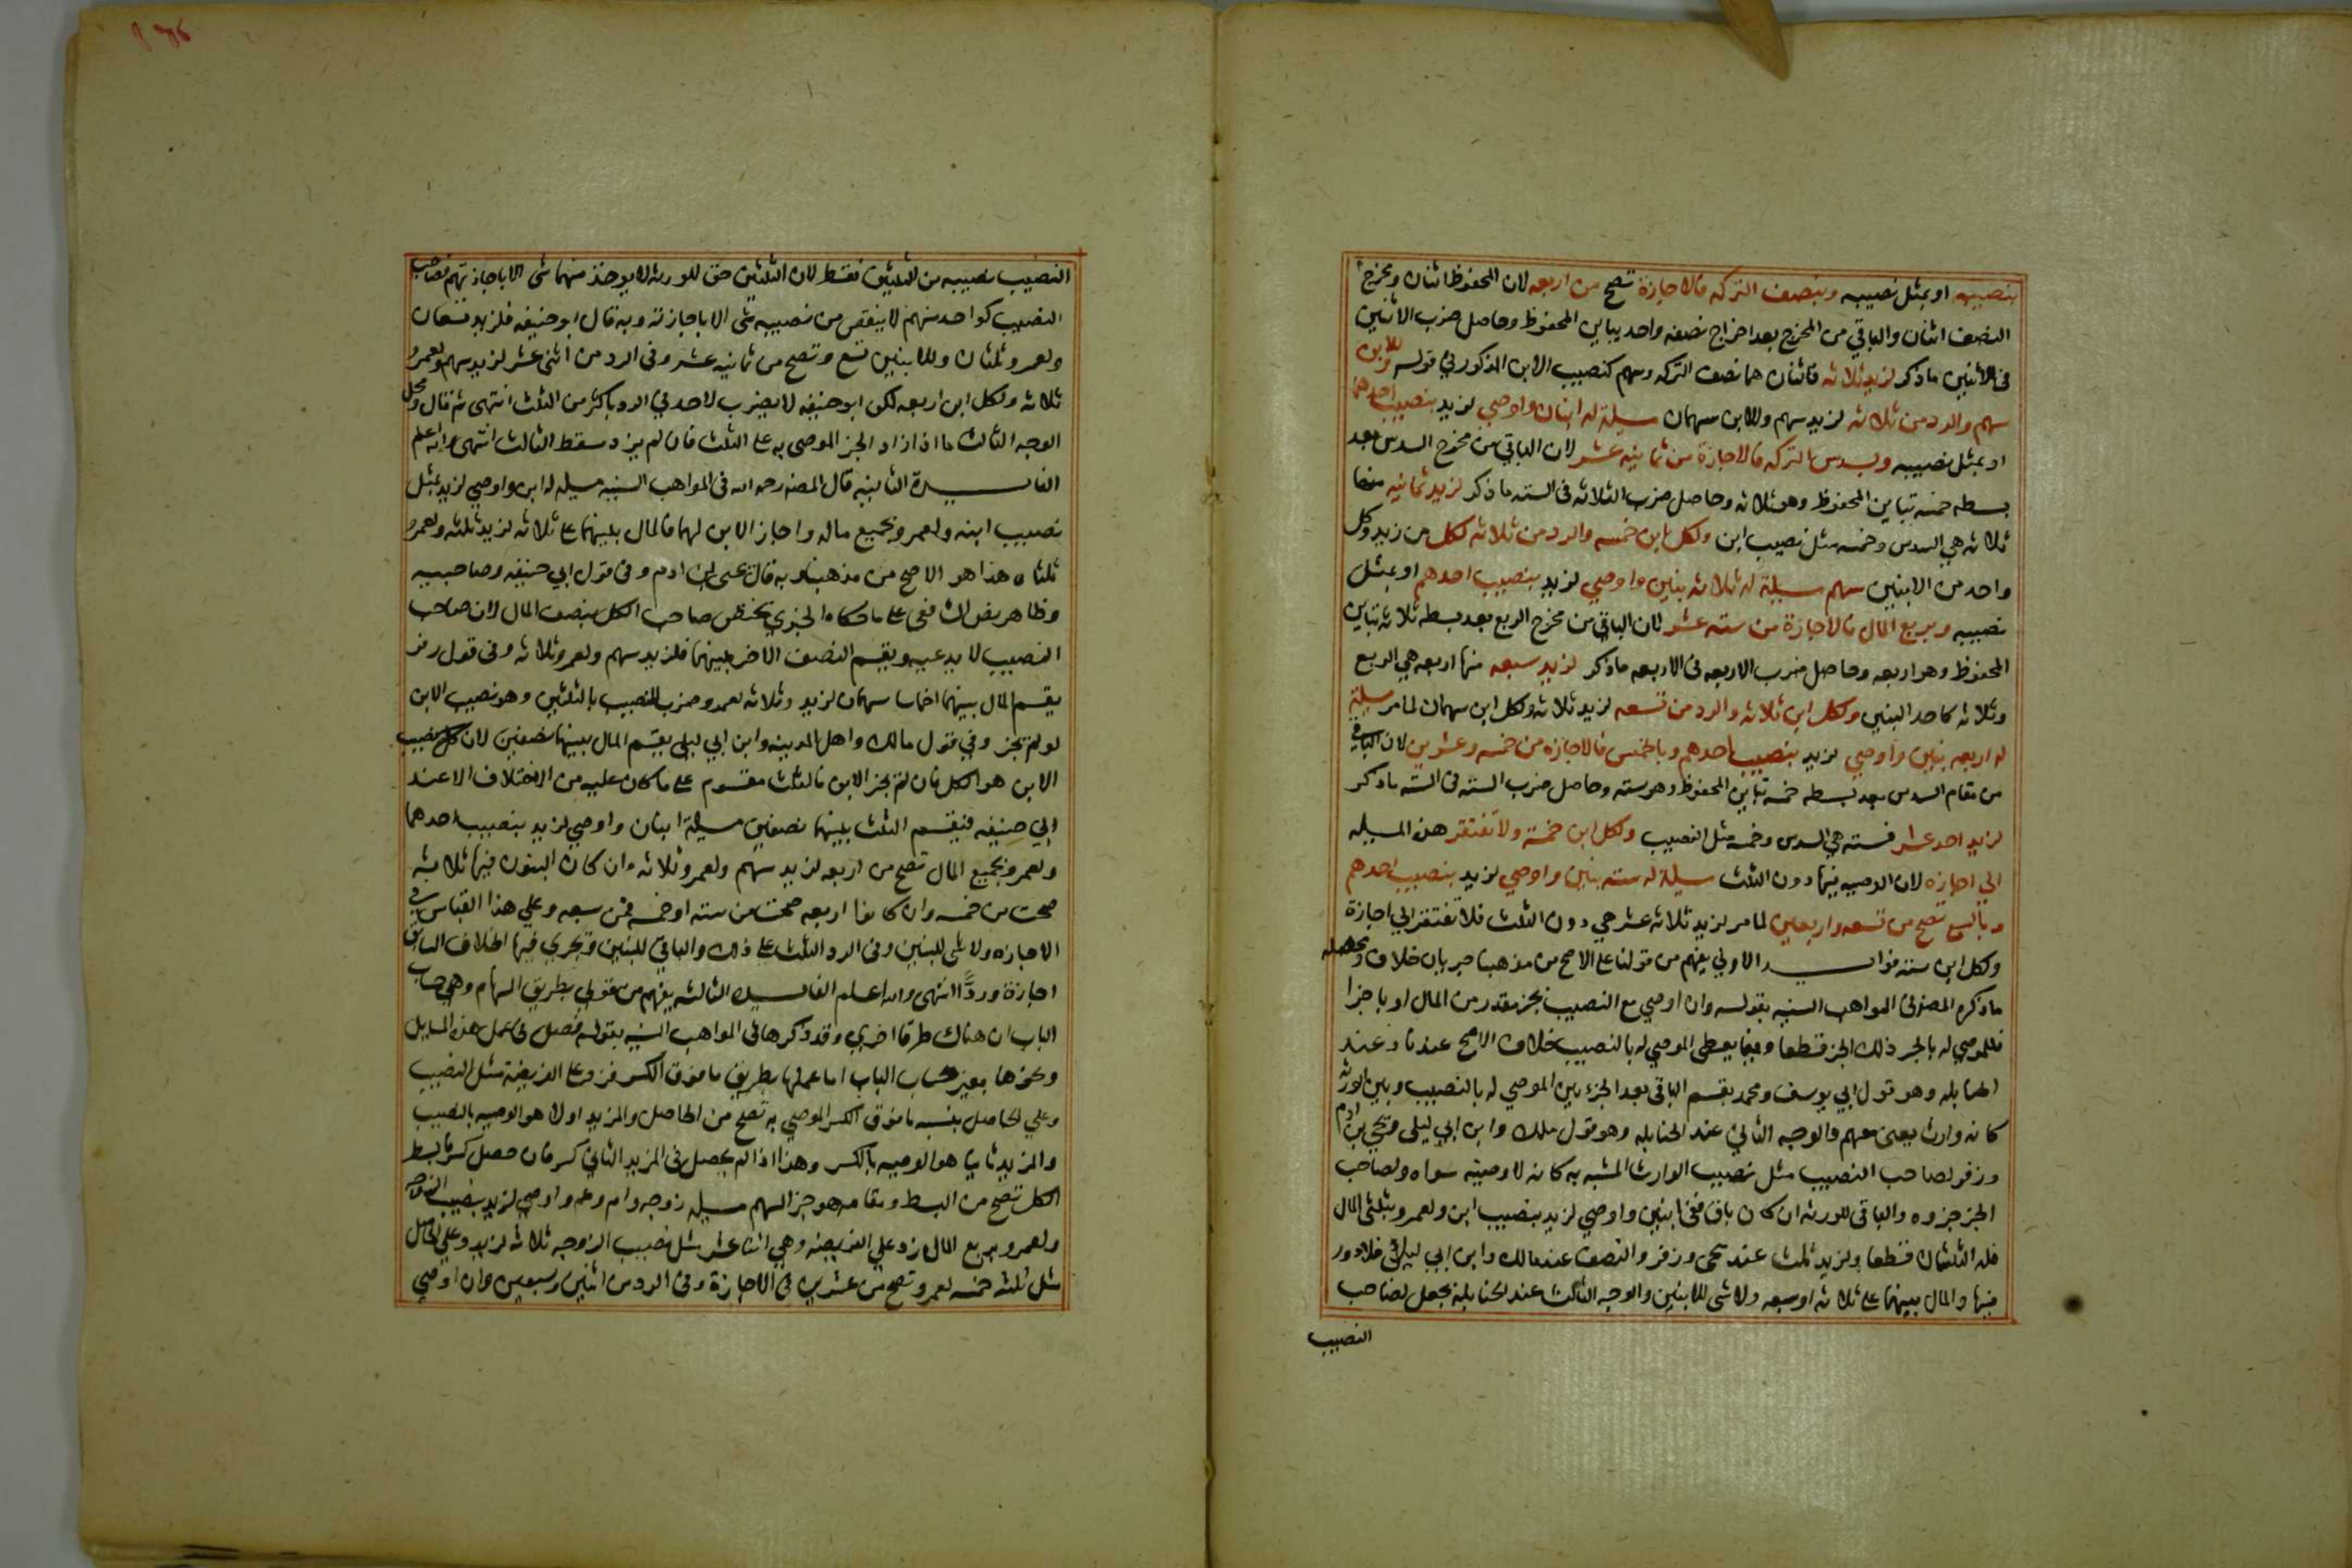 بنصيبه او بمثل نصيبه وبنصف التركه فالاجازة تصح من اربعه لان المحفوظ اثنان ومخرج
النصف اثنان والباقي من المخرج بعد اخراج نصفه واحد يباين المحفوظ وحاصل ضرب الاثنين
في الاثنين ما ذكر لزيد ثلاثه فاثنان هما نصف التركه وسهم كنصيب الابن المذكور في قوله وللابن
سهم والرد من ثلاثه لزيد سهم وللابن سهمان مسيلة له ابنان واوصي لزيد بنصيب احدهما
او بمثل نصيبه وبسدس التركه فالاجازة من ثمانية عشر لان الباقي من مخرج السدس بعد
بسطه خمسه تباين المحفوظ وهو ثلاثه وحاصل ضرب الثلاثه في السته ما ذكر لزيد ثمانيه منها
ثلاثه هي السدس وخمسه مثل نصيب ابن ولكل ابن خمسه والرد من ثلاثه لكل من زيد وكل
واحد من الابنين سهم مسيلة له ثلاثه بنين واوصي لزيد بنصيب احدهم او بمثل
نصيبه وبربع المال فالاجازة من سته عشر لان الباقي من مخرج الربع بعد بسطه ثلاثه تباين
المحفوظ وهو اربعه وحاصل ضرب الاربعه في الاربعه ما ذكر لزيد سبعه منها اربعه هي الربع
وثلاثه كاحد البنين ولكل ابن ثلاثه والرد من تسعه لزيد ثلاثه ولكل ابن سهمان لما مر مسيلة
له اربعه بنين واوصي لزيد بنصيب احدهم وبالخمس فالاجازه من خمسه وعشرين لان الباقي
من مقام السدس بعد بسطه خمسه تباين المحفوظ وهو سته وحاصل ضرب السته في السته ما ذكر
لزيد احد عشر فسته هي السدس وخمسه مثل النصيب ولكل ابن خمسة ولا تفتقر هذه المسيله
الي اجازه لان الوصيه فيها دون الثلث مسيلة له سته بنين واوصي لزيد بنصيب احدهم
وبالسبع تصح من تسعه واربعين لما مر لزيد ثلاثه عشر هي دون الثلث فلا تفتقر الي اجازة
ولكل ابن سته فوايد الاولي يفهم من قولنا علي الاصح من مذهبنا جريان خلاف ومحصله
ما ذكره المصنف في المواهب السنيه بقوله وان اوصي مع النصيب بجز مقدر من المال او باجزا
فللموصي له بالجز ذلك الجز قطعا وفيما يعطي الموصي له بالنصيب خلاف الاصح عندنا وعند
الحنابله وهو قول ابي يوسف ومحمد يقسم الباقي بعد الجزء بين الموصي له بالنصيب وبين الورثه
كانه وارث يعني معهم والوجه الثاني عند الحنابله وهو قول ملك وابن ابي ليلي ويحيي بن ادم
وزفر لصاحب النصيب مثل نصيب الوارث المشبه به كانه لا وصيه سواه ولصاحب
الجز جزوه والباقي للورثه ان كان باق ففي ابنين واوصي لزيد بنصيب ابن ولعمرو بثلثي المال
فله الثلثان قطعا ولزيد ثلث عند يحيي وزفر والنصف عند مالك وابن ابي ليلي فلا دور
فيها والمال بينهما علي ثلاثه او سبعه ولا شي للابنين والوجه الثالث عند الحنابله نجعل لصاحب
النصيب
النصيب نصيبه من الثلثين فقط لان الثلثين حق للورثه لا يوخذ منهما شي الا باجازتهم فصاحب
النصيب كواحد منهم لا ينقص من نصيبه شي الا باجازته وبه قال ابو حنيفه فلزيد تسعان
ولعمرو ثلثان وللابنين تسع وتصح من ثمانيه عشر وفي الرد من اثني عشر لزيد سهم ولعمرو
ثلاثه ولكل ابن اربعه لكن ابو حنيفه لا يضرب لاحد في الرد باكثر من الثلث انتهي ثم قال ومحل
الوجه الثالث ما اذا زاد الجز الموصي به علي الثلث فان لم يزد سقط الثالث انتهي والله اعلم
الفايدة الثانيه قال المصنف رحمه الله في المواهب السنيه مسيله له ابن واوصي لزيد بمثل
نصيب ابنه ولعمرو بجميع ماله واجاز الابن لهما فالمال بينهما علي ثلاثه لزيد ثلثه ولعمرو
ثلثاه هذا هو الاصح من مذهبنا وبه قال يحيي بن ادم وفي قول ابي حنيفه وصاحبيه
وظاهر نص الشافعي علي ما حكاه الخبري يختص صاحب الكل بنصف المال لان صاحب
النصيب لا يدعيه ويقسم النصف الاخر بينهما فلزيد سهم ولعمرو ثلاثه وفي قول زفر
يقسم المال بينهما اخماسا سهمان لزيد وثلاثه لعمرو وضرب للنصيب بالثلثين وهو نصيب الابن
لو لم تجز وفي قول مالك واهل المدينه وابن ابي ليلي يقسم المال بينهما نصفين لان كل نصيب
الابن هو الكل فان لم يجز الابن فالثلث مقسوم علي ما كان عليه من الاختلاف الا عند
ابي حنيفه فيقسم الثلث بينهما نصفين مسيلة ابنان واوصي لزيد بنصيب احدهما
ولعمرو بجميع المال تصح من اربعه لزيد سهم ولعمرو ثلاثه وان كان البنون فيها ثلاثه
صحت من خمسه وان كانوا اربعه صحت من سته او خمسه فمن سبعه وعلي هذا القياس في
الاجازه ولا شي للبنين وفي الرد الثلث علي ذلك والباقي للبنين ويجري فيها الخلاف السابق
اجازة وردًّا انتهي والله اعلم الفايده الثالثه يفهم من قولي بطريق السهام وهي حساب
الباب ان هناك طرقا اخري وقد ذكرها في المواهب السنيه بقوله فصل في عمل هذه المسايل
ونحوها بغير حساب الباب اما عملها بطريق ما فوق الكسر فزد علي الفريضة مثل النصيب
وعلي الحاصل بنسبه ما فوق الكسر الموصي به تصح من الحاصل والمزيد اولا هو الوصيه بالنصيب
والمزيد ثانيا هو الوصيه بالكسر وهذا اذا لم يحصل في المزيد الثاني كسر فان حصل كسر فابسط
الكل تصح من البسط ومقامه هو جز السهم مسيله زوجه وام وعم واوصي لزيد بنصيب الزوجه
ولعمرو بربع المال زد علي الفريضه وهي اثنا عشر مثل نصيب الزوجه ثلاثه لزيد وعلي الحاصل
مثل ثلثه خمسه لعمرو وتصح من عشرين في الاجازة وفي الرد من اثنين وسبعين وان اوصي